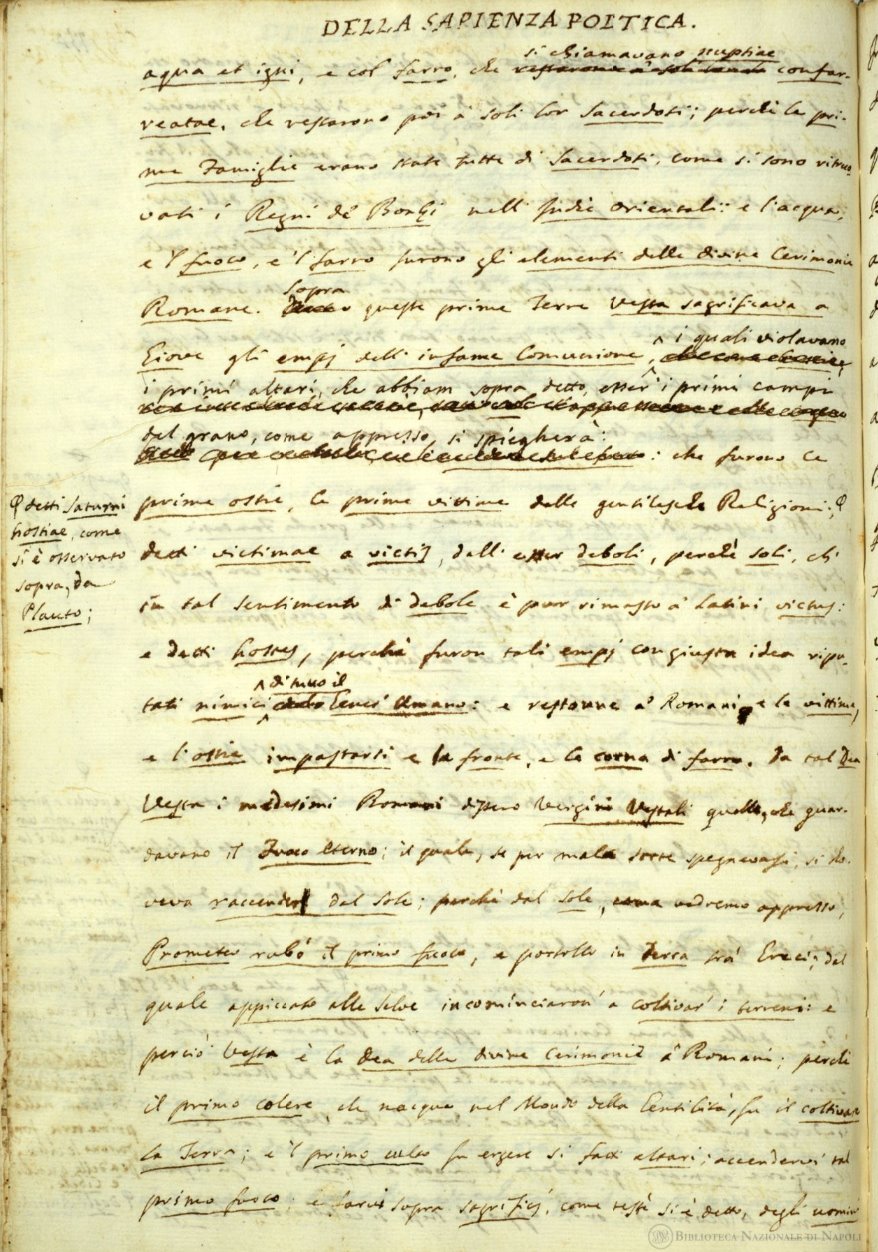 DELLA SAPIENZA POETICA.
si chiamavano nuptiae
aqua et igni, e col farro, che confar-
reatae, che restarono poi a' soli lor Sacerdoti; perchè le pri-
me Famiglie erano state tutte di Sacerdoti, come si sono ritruo-
vati i Regni de' Bonzj nell' Indie Orientali: e l'acqua,
e 'l fuoco, e 'l farro furono gli elementi delle divine Cerimonie
sopra
Romane. queste prime Terre Vesta sagrificava a
i quali violavano
Giove gli empj dell' infame Comunione,
i primi altari, che abbiam sopra detto, esser i primi campi
del grano, come appresso si spiegherà:
: che furono le
prime ostie, le prime vittime delle gentilesche Religioni;
detti Saturni
hostiae, come
si è osservato
sopra, da
Plauto;
detti victimae a victis, dell' esser deboli, perchè soli, ch'
in tal sentimento di debole è pur rimasto a' Latini victus:
e detti hostes, perchè furon tali empj con giusta idea ripu-
di tutto il
tati nimici Gener' Umano: e restonne a' Romani e le vittime,
e l'ostie impastarsi e la fronte, e le corna di farro. Da tal Dea
Vesta i medesimi Romani dissero Vergini Vestali quelle, che guar-
davano il Fuoco eterno; il quale, se per mala sorte spegnevasi, si do-
veva raccender dal Sole; perchè dal Sole, vedremo appresso,
Prometeo rubò il primo fuoco, e portollo in Terra tra' Greci; dal
quale appiccato alle Selve incominciaron' a coltivar' i terreni: e
perciò Vesta è la Dea delle divine Cerimonie a' Romani; perchè
il primo colere, che nacque nel Mondo della Gentilità, fu il coltivar
la Terra; e 'l primo culto fu ergere sì fatti altari; accendervi tal
primo fuoco; e farvi sopra sagrifizj, come testè si è detto, degli uomini
BIBLIOTECA NAZIONALE DI NAPOLI